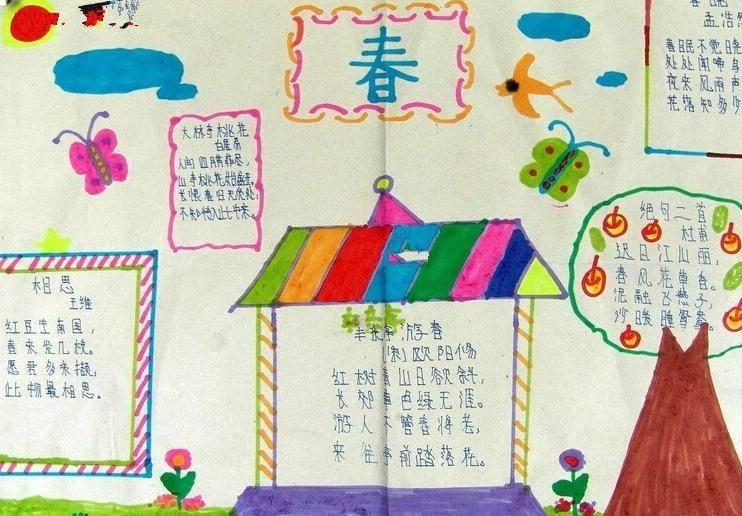 春
孟浩
春眠不觉晓
处处闻啼鸟
夜来风雨声
花落知多少
大林寺桃花
白居易
人间四月芳菲尽，
山寺桃花始盛开。
长恨春归无觅处，
不知转入此中来。
相思
王维
红豆生南国，
春来发几枝。
愿君多采撷，
此物最相思。
丰乐亭游春
（宋）欧阳修
红树青山日欲斜，
长郊草色绿无涯。
游人不管春将老，
来往亭前踏落花。
绝句二首
杜甫
迟日江山丽，
春风花草香。
泥融飞燕子，
沙暖睡鸳鸯。